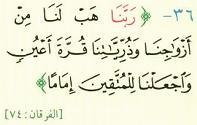 ٣٦- ﴿رَبَّنَا هَبْ لَنَا مِنْ
أَزْوَاجِنَا وَذُرِّيَّاتِنَا قُرَّةَ أَعْيُنٍ
وَاجْعَلْنَا لِلْمُتَّقِينَ إِمَامًا﴾
[الفرقان: ٧٤]